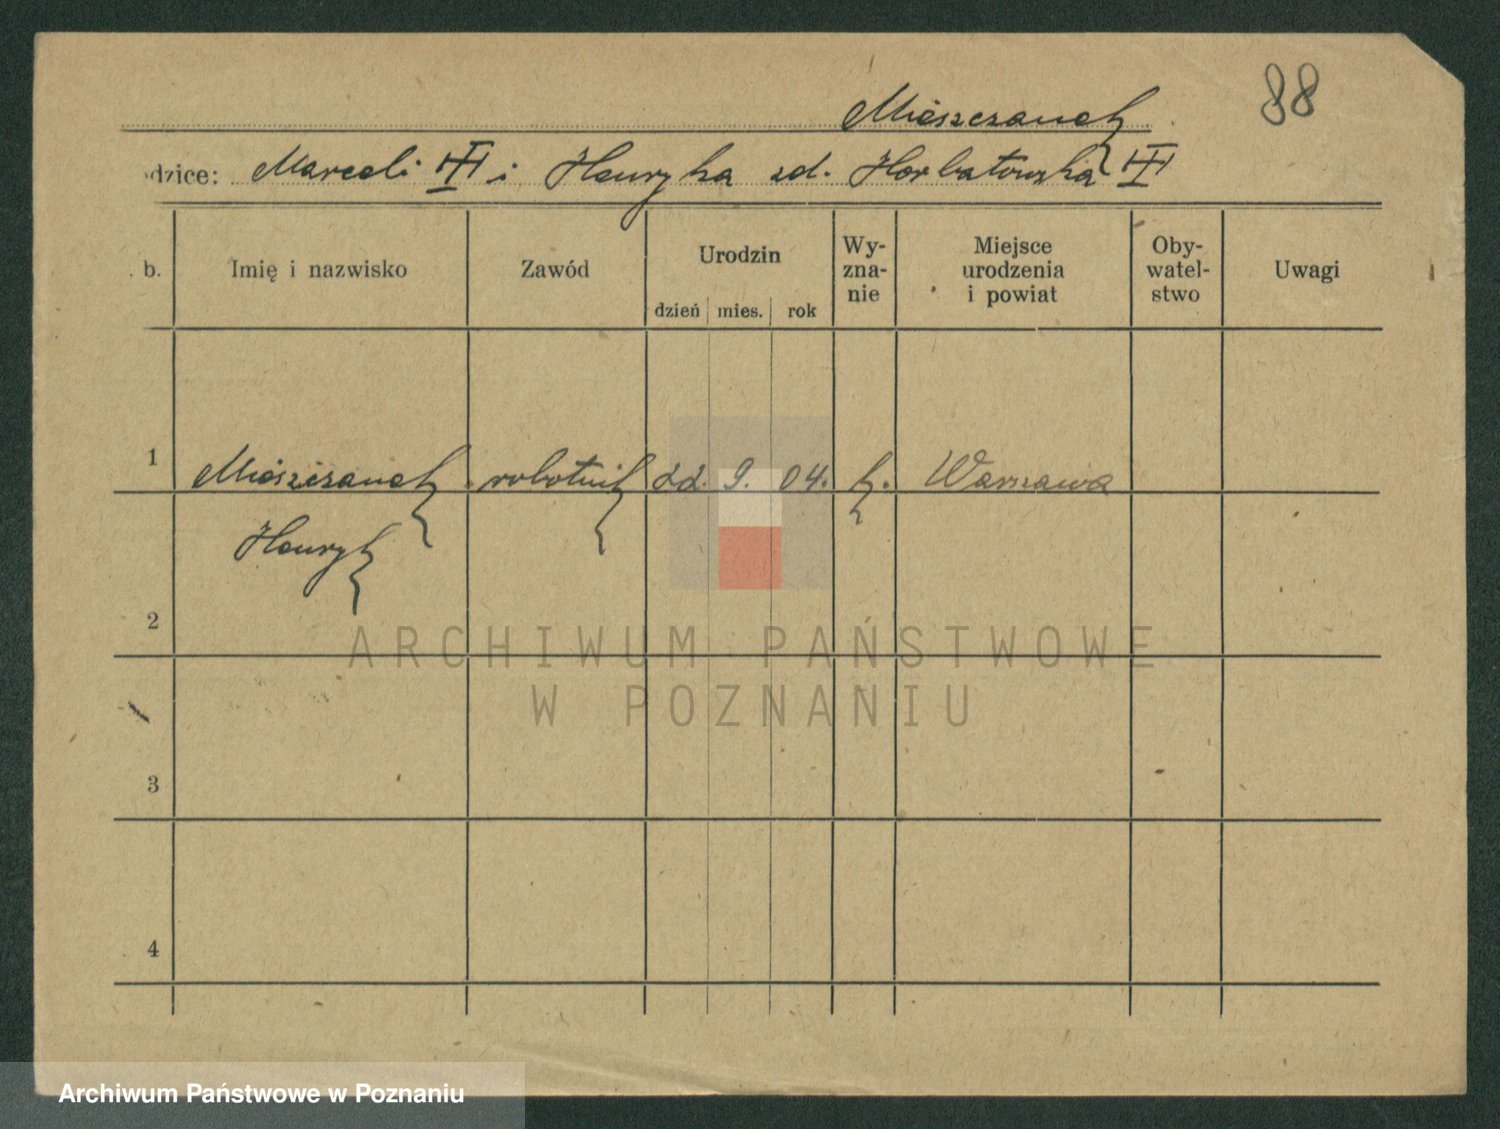 Mieszczanek
88
dzice: Marceli i Henryka zd. Horbatowska
b. Imię i nazwisko Zawód Urodzin dzień mies. rok Wy-zna-nie Miejsce urodzenia i powiat Oby-watel-stwo Uwagi
1 Mieszczanek robotnik 22. 9. 04. k. Warszawa
Henryk
2
ARCHIWUM PAŃSTWOWE
W POZNANIU
3
4
Archiwum Państwowe w Poznaniu